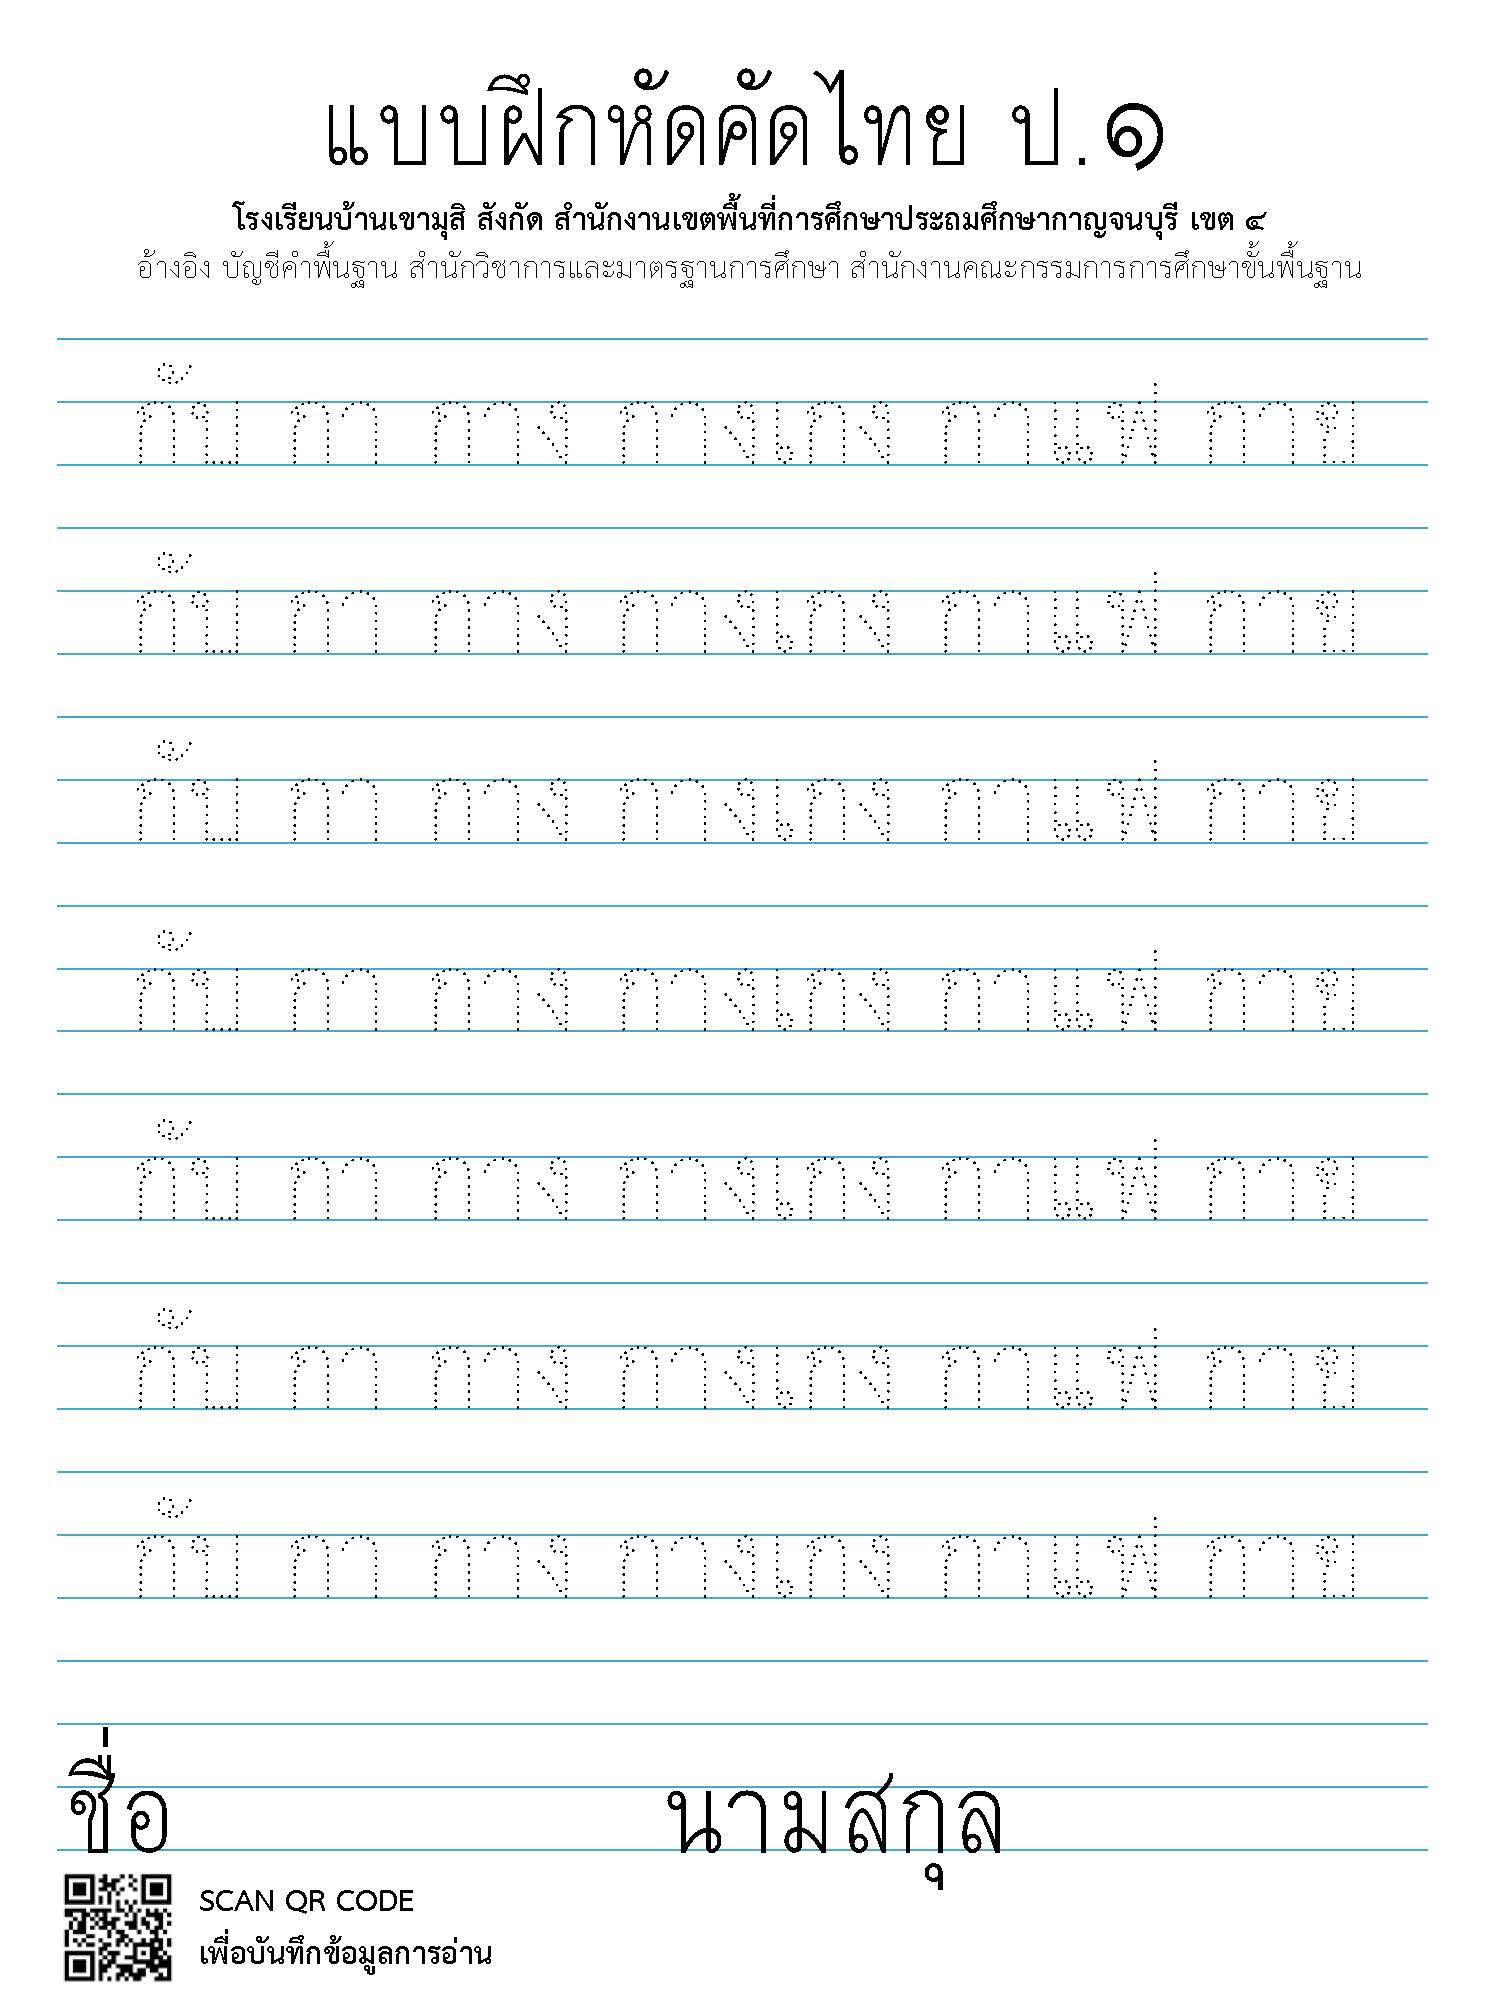 แบบฝึกหัดคัดไทย ป.๑
โรงเรียนบ้านเขามุสิ สังกัด สำนักงานเขตพื้นที่การศึกษาประถมศึกษากาญจนบุรี เขต ๔
อ้างอิง บัญชีคำพื้นฐาน สำนักวิชาการและมาตรฐานการศึกษา สำนักงานคณะกรรมการการศึกษาขั้นพื้นฐาน
กับ กา กาง กางเกง กาแฟ กาย
กับ กา กาง กางเกง กาแฟ กาย
กับ กา กาง กางเกง กาแฟ กาย
กับ กา กาง กางเกง กาแฟ กาย
กับ กา กาง กางเกง กาแฟ กาย
กับ กา กาง กางเกง กาแฟ กาย
กับ กา กาง กางเกง กาแฟ กาย
ชื่อ นามสกุล
SCAN QR CODE
เพื่อบันทึกข้อมูลการอ่าน